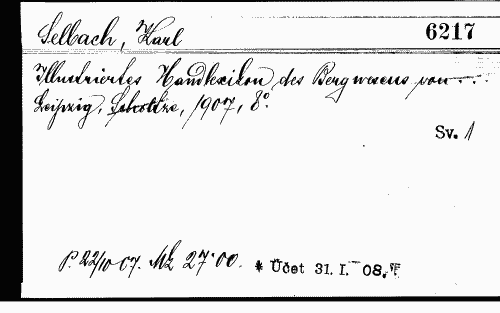 Selbach, Karl 6217
Illustriertes Handlexikon des Bergwesens von - . . .
Leipzig, Scholtze, 1907, 8°.
Sv. 1
P. 22/10 07. Mk 27·00. * Účet 31. I. 08.